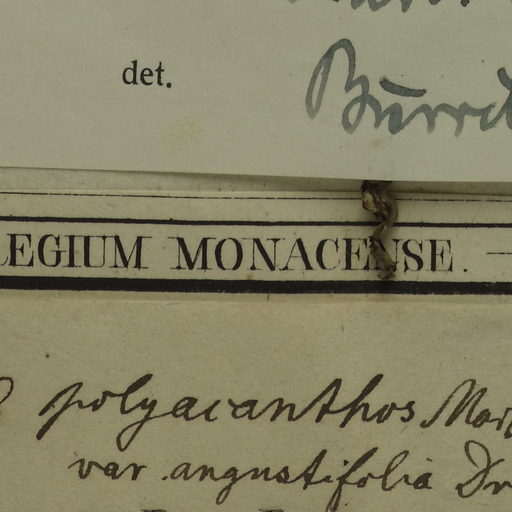 det.
LEGIUM MONACENSE.
polyacanthos Mart
var. angustifolia Dr